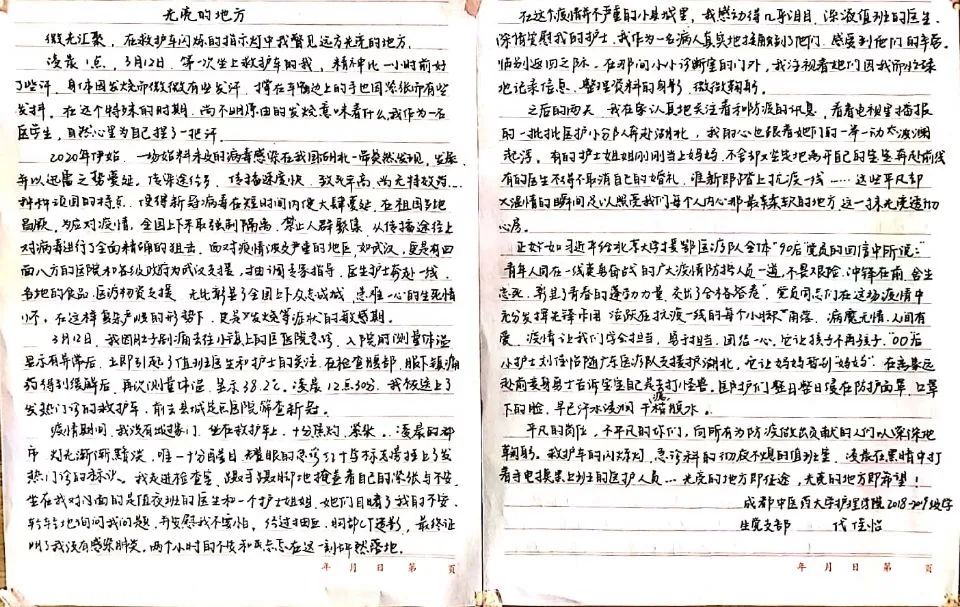 光亮的地方
微光汇聚，在救护车闪烁的指示灯中我瞥见远方光亮的地方。
凌晨1点，3月12日，第一次坐上救护车的我，精神比一小时前好
了些许，身体因发烧而微微有些发汗，撑在车侧边上的手也因紧张而有些
发抖。在这个特殊的时期，尚不明原由的发烧意味着什么，我作为一名
医学生，自然心里为自己捏了一把汗。
2020年伊始，一场始料未及的病毒感染在我国湖北一带突然发现，发展
并以迅雷之势蔓延。传染途径多，传播速度快，致死率高，尚无特效药……
种种顽固的特点，使得新冠病毒在短时间内便大肆蔓延，在祖国多地
猖獗。为应对疫情，全国上下采取强制隔离，禁止人群聚集，从传播途径上
对病毒进行了全面精确的狙击。面对疫情波及严重的地区，如武汉，更是有四
面八方的医院和各级政府为武汉支援，抽调专家指导，医生护士奔赴一线，
各地的食品、医疗物资支援，无比彰显了全国上下众志成城，患难一心的生死情
怀。在这样复杂严峻的形势下，更是"发烧等症状"的敏感期。
3月12日，我因肚子剧痛去往小镇上的区医院急诊，入院前测量体温
显示有异常后，立即引起了值班医生和护士的关注，在检查腹部，服下镇痛
药得到缓解后，再次测量体温，显示38.2℃。凌晨12点30分，我被送上了
发热门诊的救护车，前去县城定点医院筛查新冠。
疫情期间，我没有迈过家门，坐在救护车上，十分焦灼、茶呆。凌晨的都
市，灯光渐渐黯淡，唯一十分醒目、耀眼的急诊红十字标志旁挂上了发
热门诊的标识。我走进检查室，蹑手蹑脚地掩着自己的紧张与不安，
坐在我对面的是值夜班的医生和一个护士姐姐，她们目睹了我的不安，
轻轻地询问我的问题，并安慰我不要怕。经过抽血、胸部CT透影，最终证
明了我没有感染肺炎。两个小时的不安和忐忑在这一刻怦然落地。
年 月 日 第 页
在这个疫情并不严重的小县城里，我感动得几乎泪目，深夜值班的医生、
深情安慰我的护士，我作为一名病人真实地接触到了他们，感受到他们的辛苦。
临别返回之际，在那间小小诊断室的门外，我注视着她们因我而忙碌
地记录信息，整理资料的身影，微微鞠躬。
之后的两天，我在家认真地关注着和防疫的讯息，看着电视里播报
的一批批医护小分队奔赴湖北，我的心也跟着她们的一举一动太波澜
起浮。有的护士姐姐刚刚当上妈妈，不舍却坚决地离开自己的宝宝奔赴前线，
有的医生不得不取消自己的婚礼，准新郎踏上抗疫一线……这些平凡却
又温情的瞬间足以照亮我们每个人内心那最柔软的地方，这一抹光亮透彻
心房。
正好如习近平给北京大学援鄂医疗队全体"90后"党员的回信中所说："
青年人同在一线英勇奋战的广大疫情防控人员一道，不畏艰险、冲锋在前、舍生
忘死，彰显了青春的蓬勃力量，交出了合格答卷"，党员同志们在这场疫情中
充分发挥先锋作用，活跃在抗疫一线的每个小小的"角落。病魔无情，人间有
爱，疫情让我们学会担当，勇于担当，团结一心，它让孩子不再孩子。"00后
小护士刘佳怡随广东医疗队支援护湖北，它让妈妈暂别"妈妈"。在离家远
赴前来身勇士告诉宝宝自己是去打小怪兽。医护们整日整日浸在防护面罩、口罩
下的脸，早已汗水浸润，干瘪脱水。
平凡的岗位，不平凡的你们，向所有为防疫做出贡献的人们以深深地
鞠躬。救护车的闪烁灯，急诊科的彻夜不熄的值班室，凌晨在黑暗中打
着手电摸索上班的医护人员……光亮的地方即征途，光亮的地方即希望！
成都中医药大学护理学院2018-2019级学
生党支部 代佳怡
年 月 日 第 页